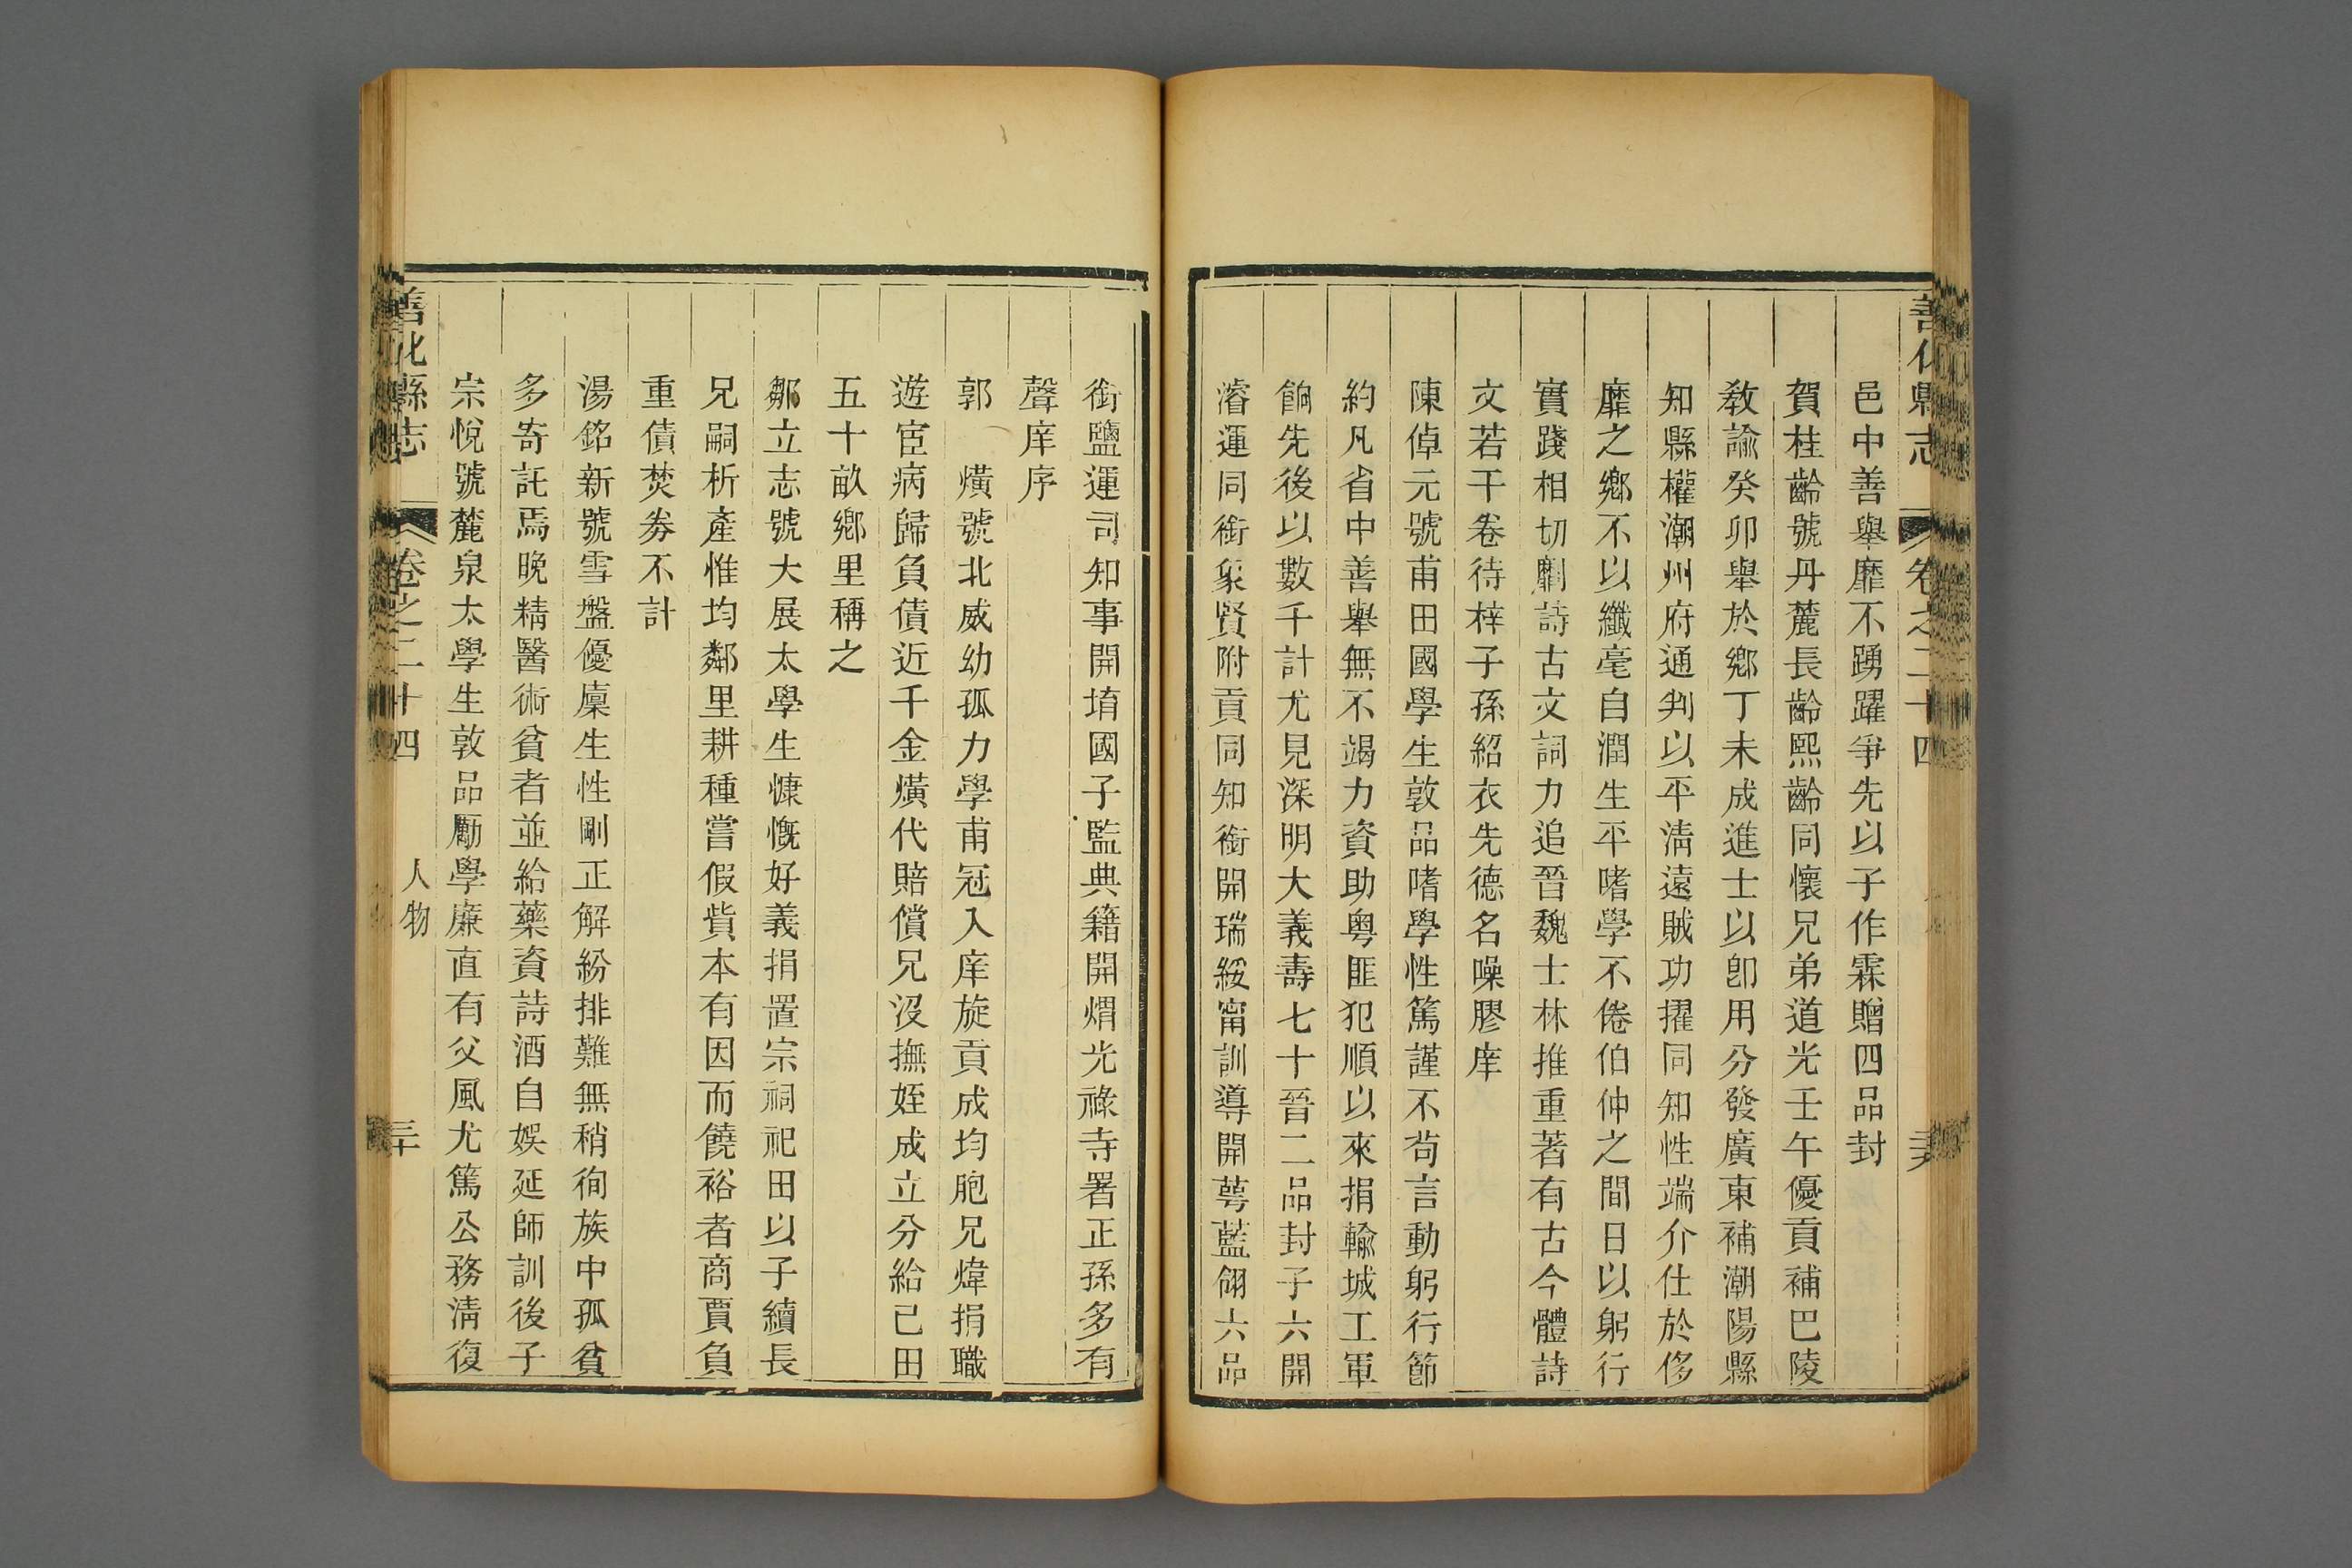 善化縣志 卷之二十四
邑中善舉靡不踴躍爭先以子作霖贈四品封
賀桂齡號丹麓長齡熙齡同懷兄弟道光壬午優貢補巴陵
敎諭癸卯舉於鄉丁未成進士以卽用分發廣東補潮陽縣
知縣權潮州府通判以平淸遠賊功擢同知性端介仕於侈
靡之鄉不以纖毫自潤生平嗜學不倦伯仲之間日以躬行
實踐相切劘詩古文詞力追晉魏士林推重著有古今體詩
文若干卷待梓子孫紹衣先德名噪膠庠
陳倬元號甫田國學生敦品嗜學性篤謹不苟言動躬行節
約凡省中善舉無不竭力資助粵匪犯順以來捐輸城工軍
餉先後以數千計尤見深明大義壽七十晉二品封子六開
濬運同銜象賢附貢同知銜開瑞綏甯訓導開萼藍翎六品
銜鹽運司知事開堉國子監典籍開焆光祿寺署正孫多有
聲庠序
郭 熿號北威幼孤力學甫冠入庠旋貢成均胞兄煒捐職
遊宦病歸負債近千金熿代賠償兄沒撫姪成立分給己田
五十畝鄉里稱之
鄒立志號大展太學生慷慨好義捐置宗祠祀田以子續長
兄嗣析產惟均鄰里耕種嘗假貲本有因而饒裕者商賈負
重債焚券不計
湯銘新號雪盤優廩生性剛正解紛排難無稍徇族中孤貧
多寄託焉晚精醫術貧者並給藥資詩酒自娛延師訓後子
宗悅號麓泉太學生敦品勵學廉直有父風尤篤公務淸復
善化縣志 卷之二十四 人物 三十